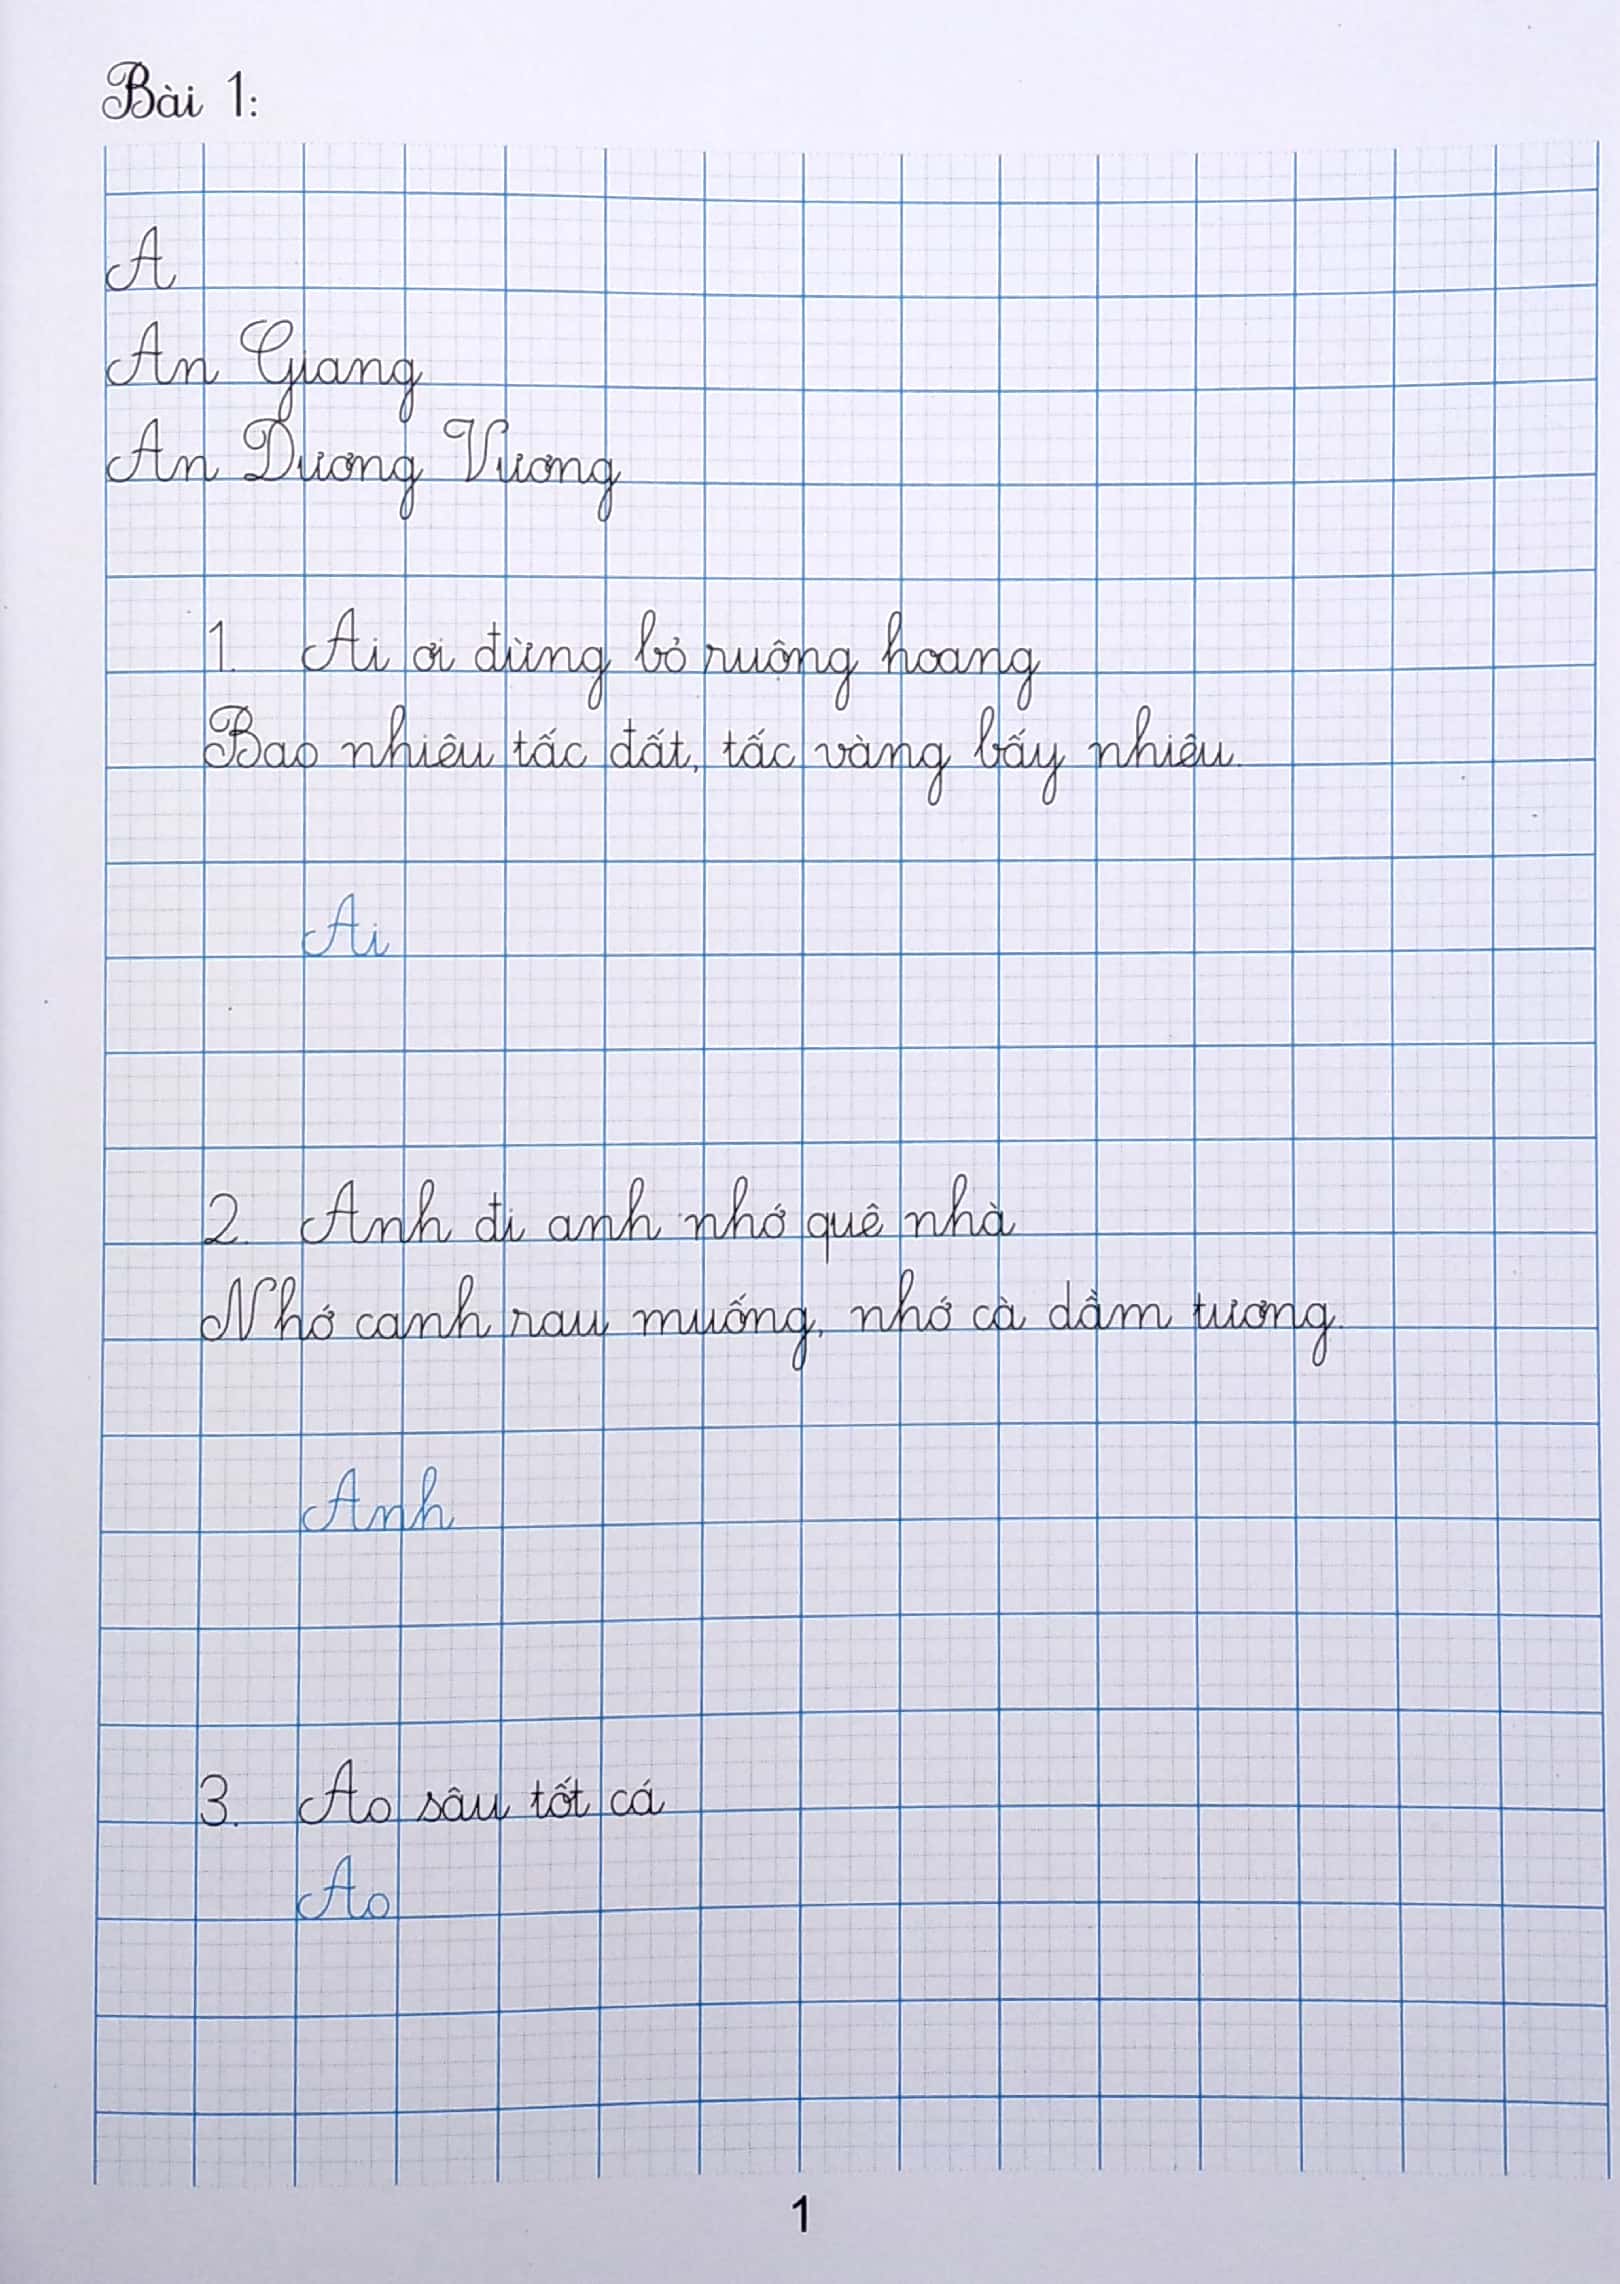 Bài 1:
A
An Giang
An Dương Vương
1. Ai ơi đừng bỏ ruộng hoang
Bao nhiêu tấc đất, tấc vàng bấy nhiêu.
Ai
2. Anh đi anh nhớ quê nhà
Nhớ canh rau muống, nhớ cà dầm tương.
Anh
3. Ao sâu tốt cá
Ao
1